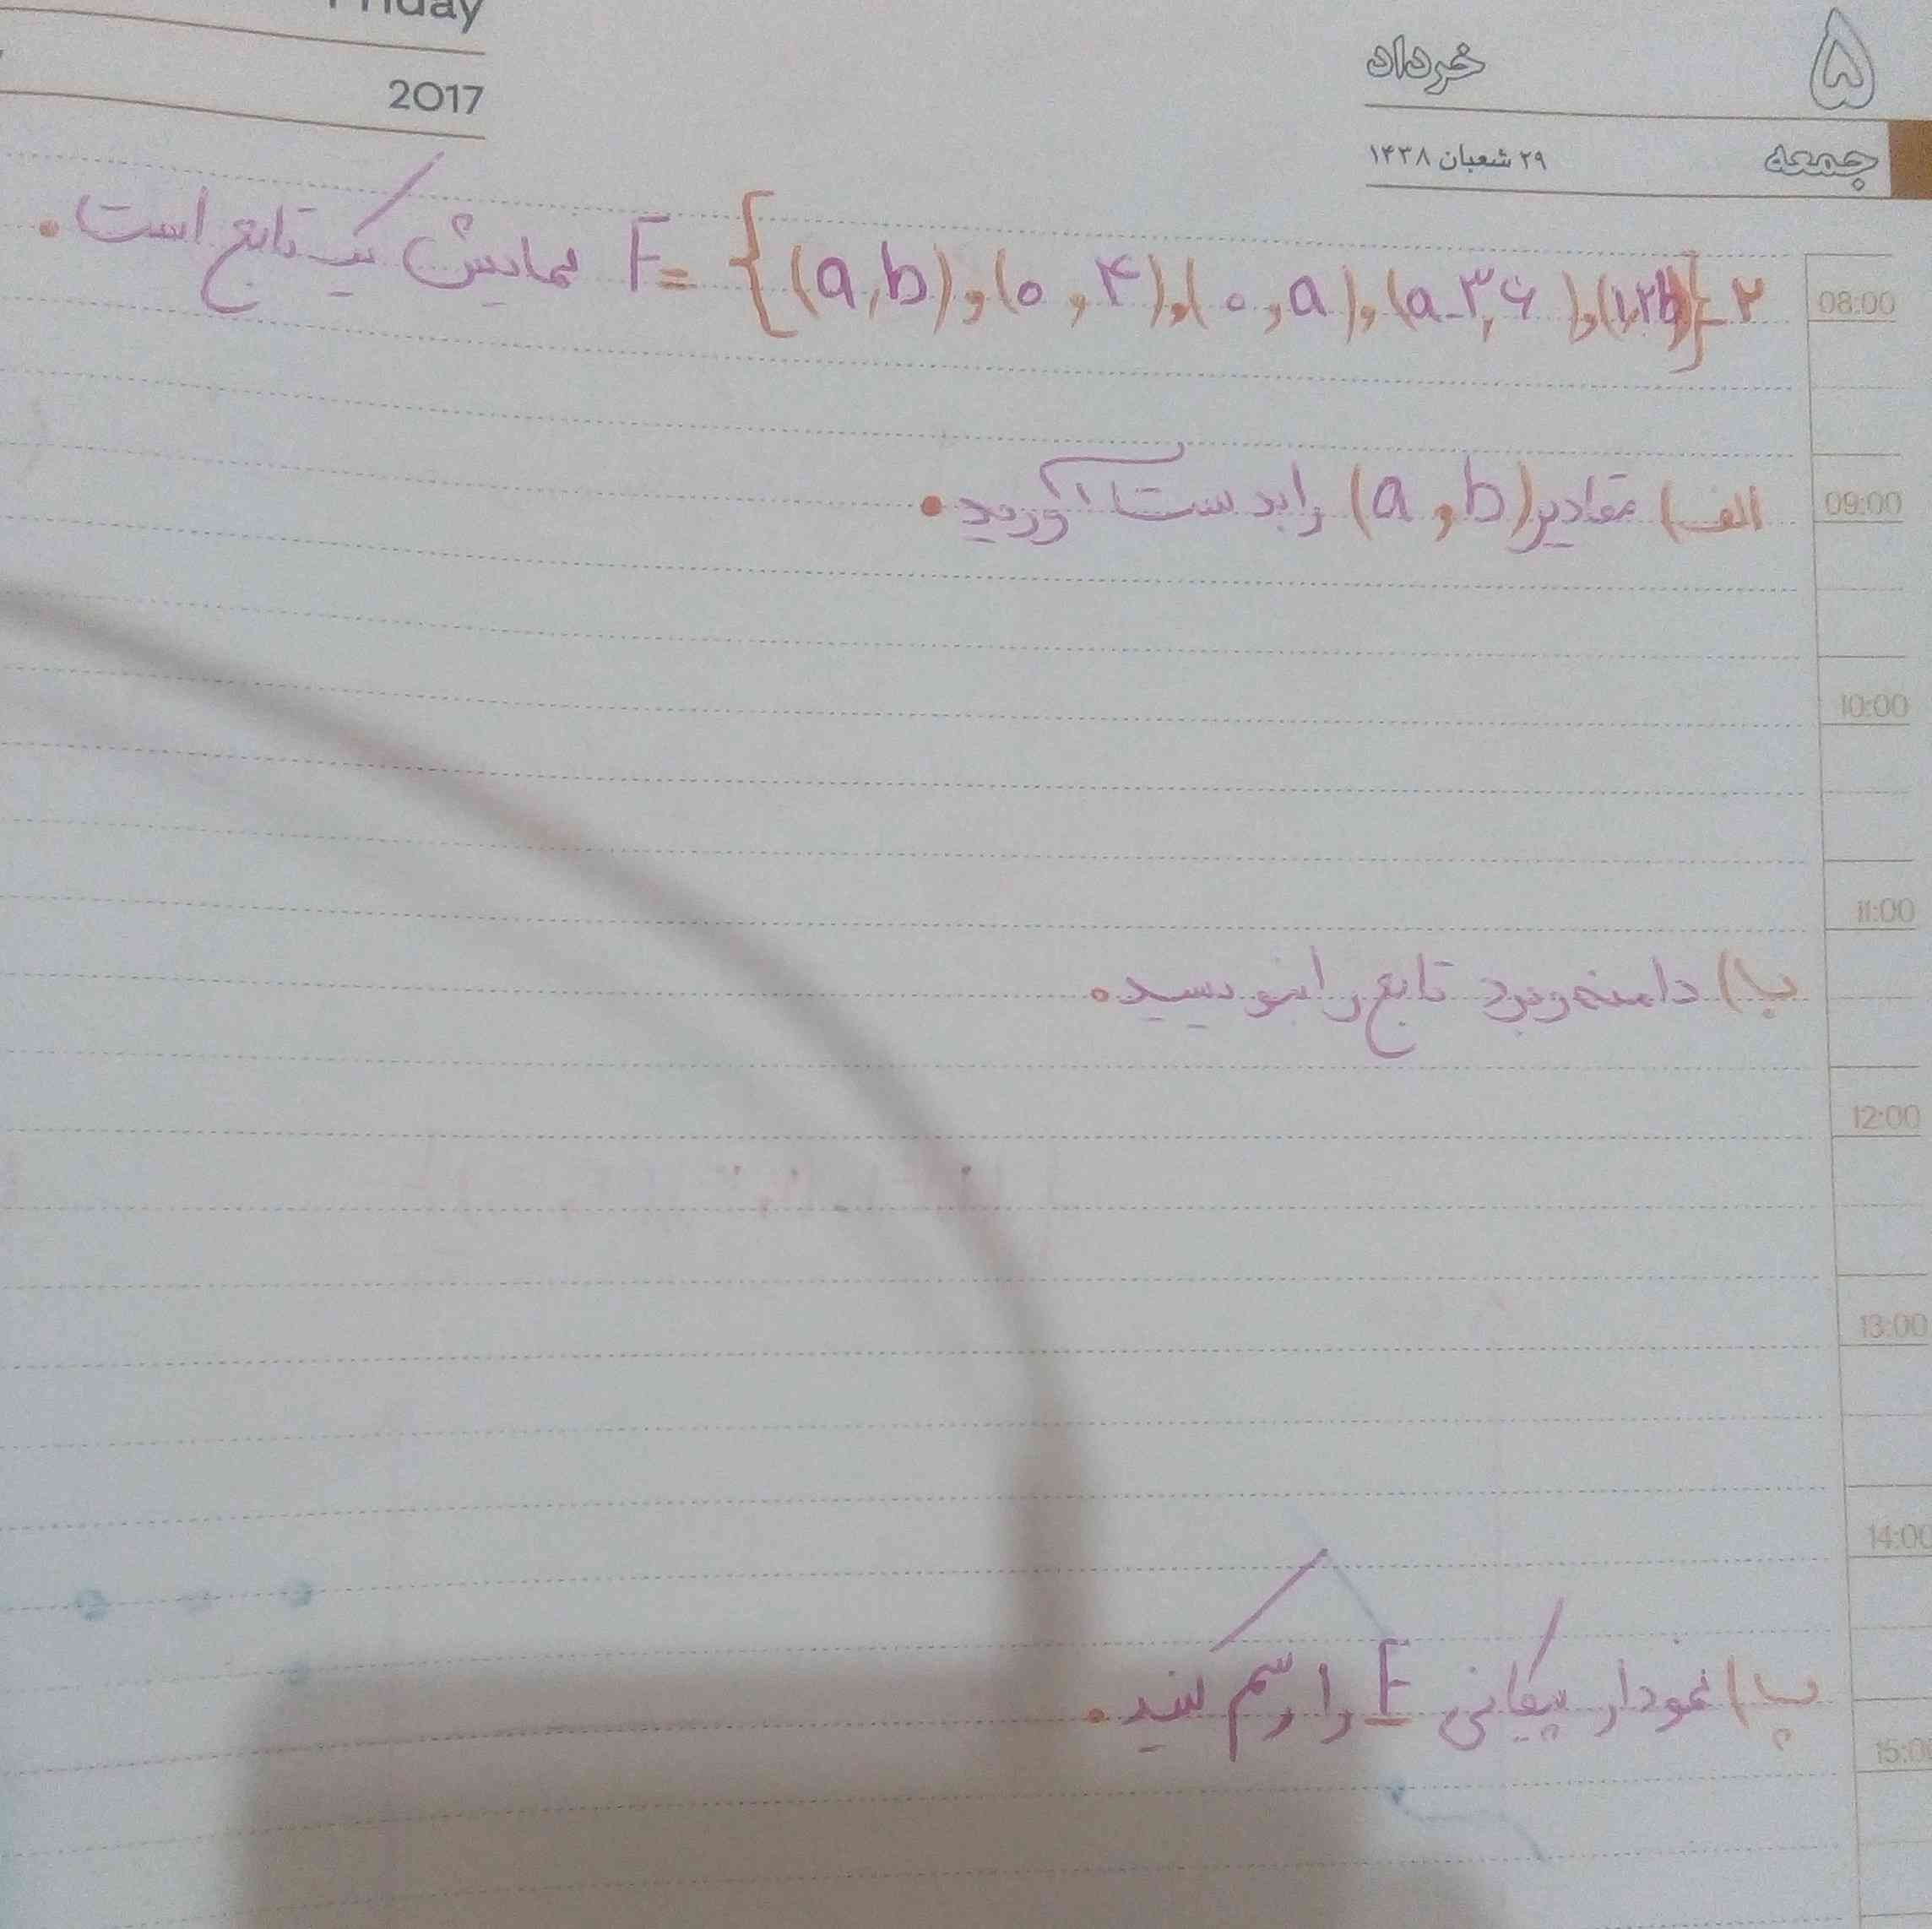 Friday
2017
۵
خرداد
جمعه
۲۹ شعبان ۱۴۳۸
۲_ F= {(a,b),(0,۴),(0,a),(a-۳,۶),(1,۲b)} نمایش یک تابع است.
الف) مقادیر (a,b) را بدست آورید.
ب) دامنه و برد تابع را بنویسید.
پ) نمودار پیکانی F را رسم کنید.
08:00
09:00
10:00
11:00
12:00
13:00
14:00
15:00